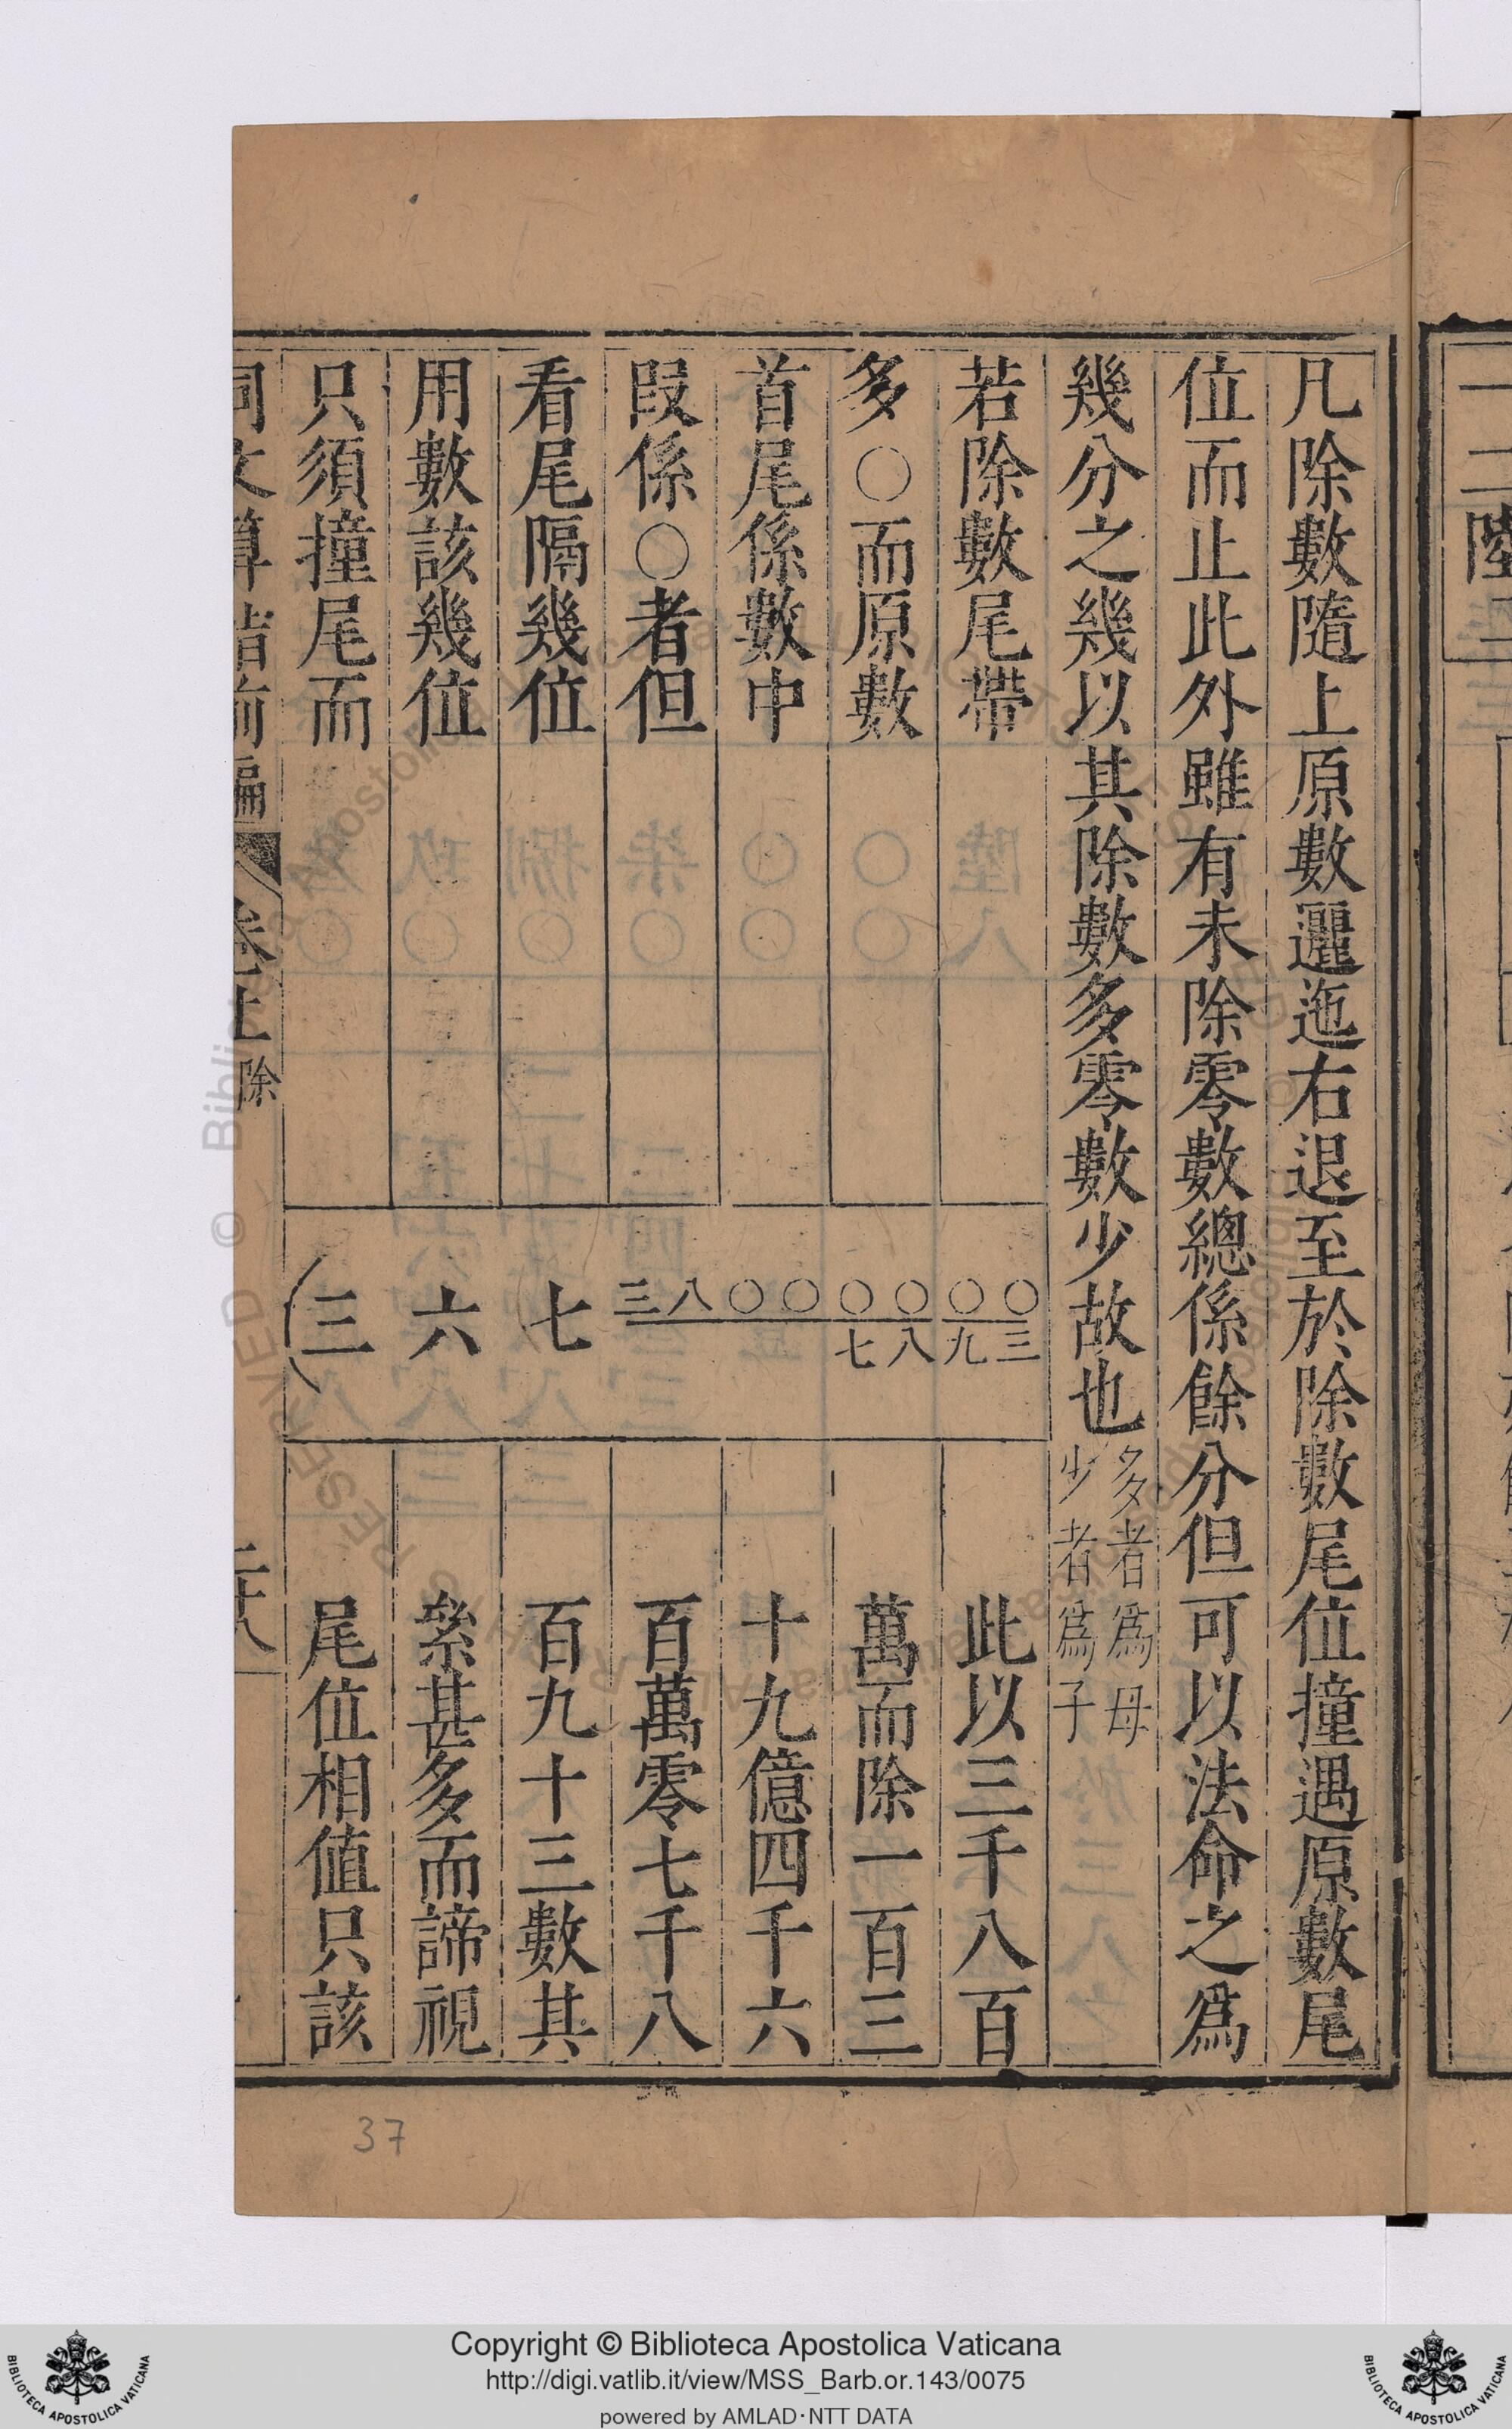 凡除數隨上原數邐迤右退至於除數尾位撞遇原數尾
位而止此外雖有未除零數總係餘分但可以法命之爲
幾分之幾以其除數多零數少故也多者爲母少者爲子
若除數尾帶
多○而原數
首尾係數中
段係○者但
看尾隔幾位
用數該幾位
只須撞尾而
三八○○○○○○
七八九三
七
六
三
此以三千八百
萬而除一百三
十九億四千六
百萬零七千八
百九十三數其
絫甚多而諦視
尾位相值只該
同文算指前編 卷上 除 二十八
37
Copyright © Biblioteca Apostolica Vaticana
http://digi.vatlib.it/view/MSS_Barb.or.143/0075
powered by AMLAD·NTT DATA
BIBLIOTECA APOSTOLICA VATICANA
BIBLIOTECA APOSTOLICA VATICANA